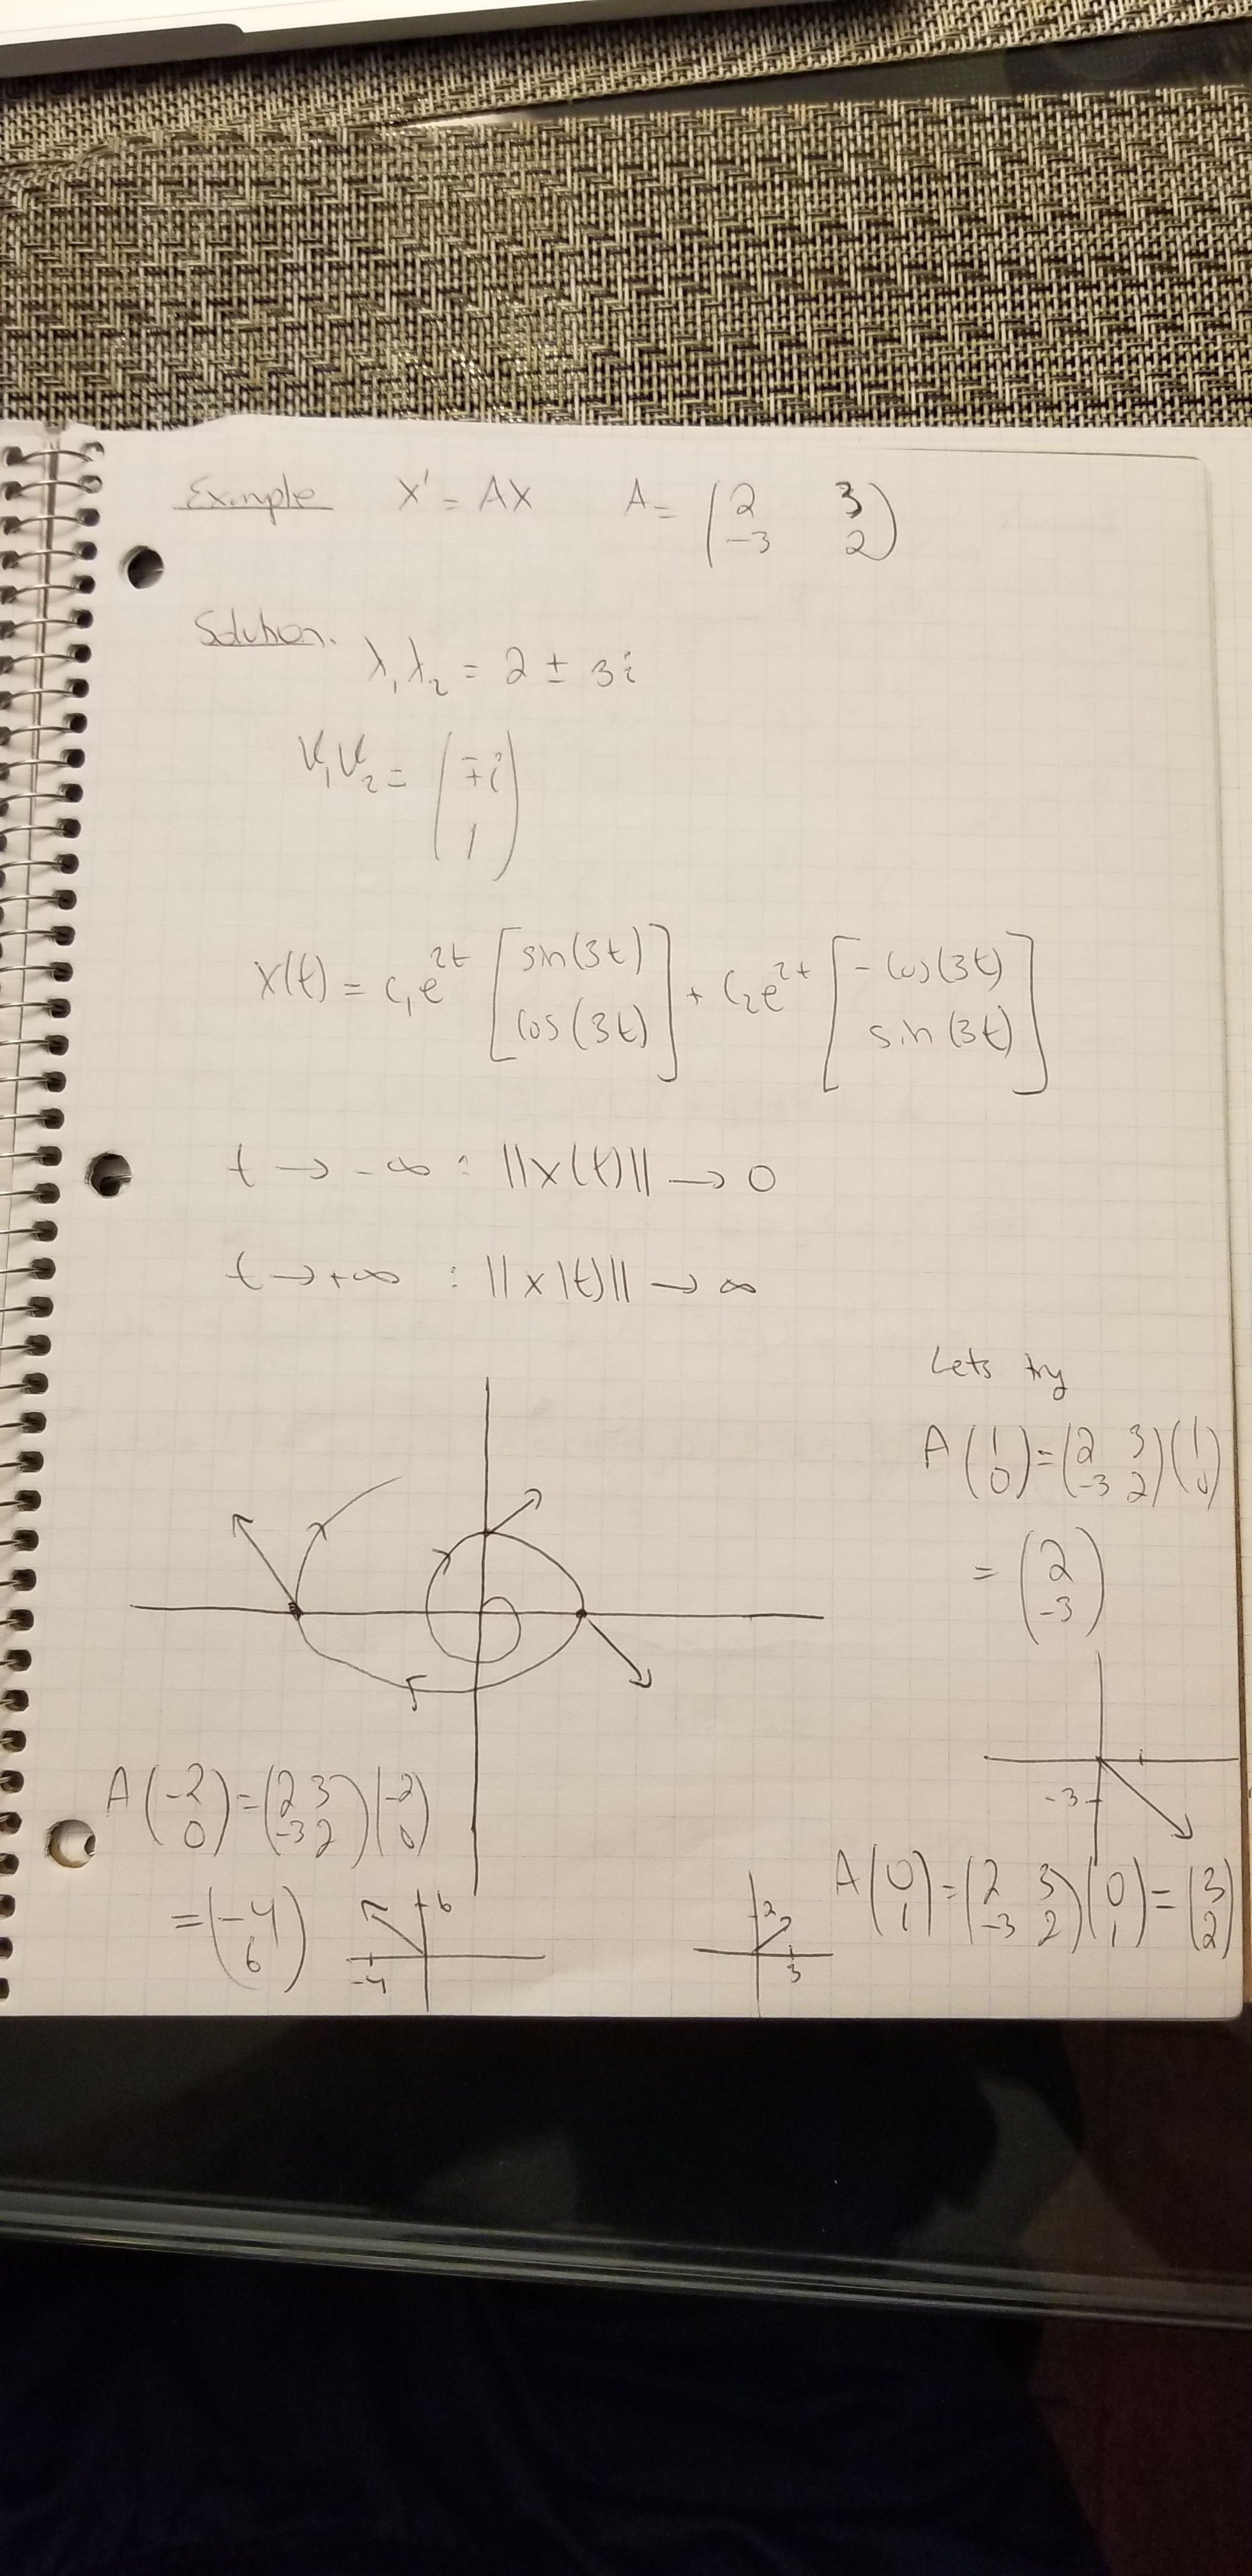 Example X' = AX A = (2 3
-3 2)
Solution.
λ₁λ₂ = 2 ± 3i
V₁V₂ = (∓i
1)
X(t) = c₁e^2t [sin(3t)
cos(3t)] + c₂e^2t [-cos(3t)
sin(3t)]
t → -∞ : ||x(t)|| → 0
t → +∞ : ||x(t)|| → ∞
Lets try
A(1
0) = (2 3
-3 2)(1
0)
= (2
-3)
-3
A(-2
0) = (2 3
-3 2)(-2
0)
= (-4
6)
6
-4
2
3
A(0
1) = (2 3
-3 2)(0
1) = (3
2)